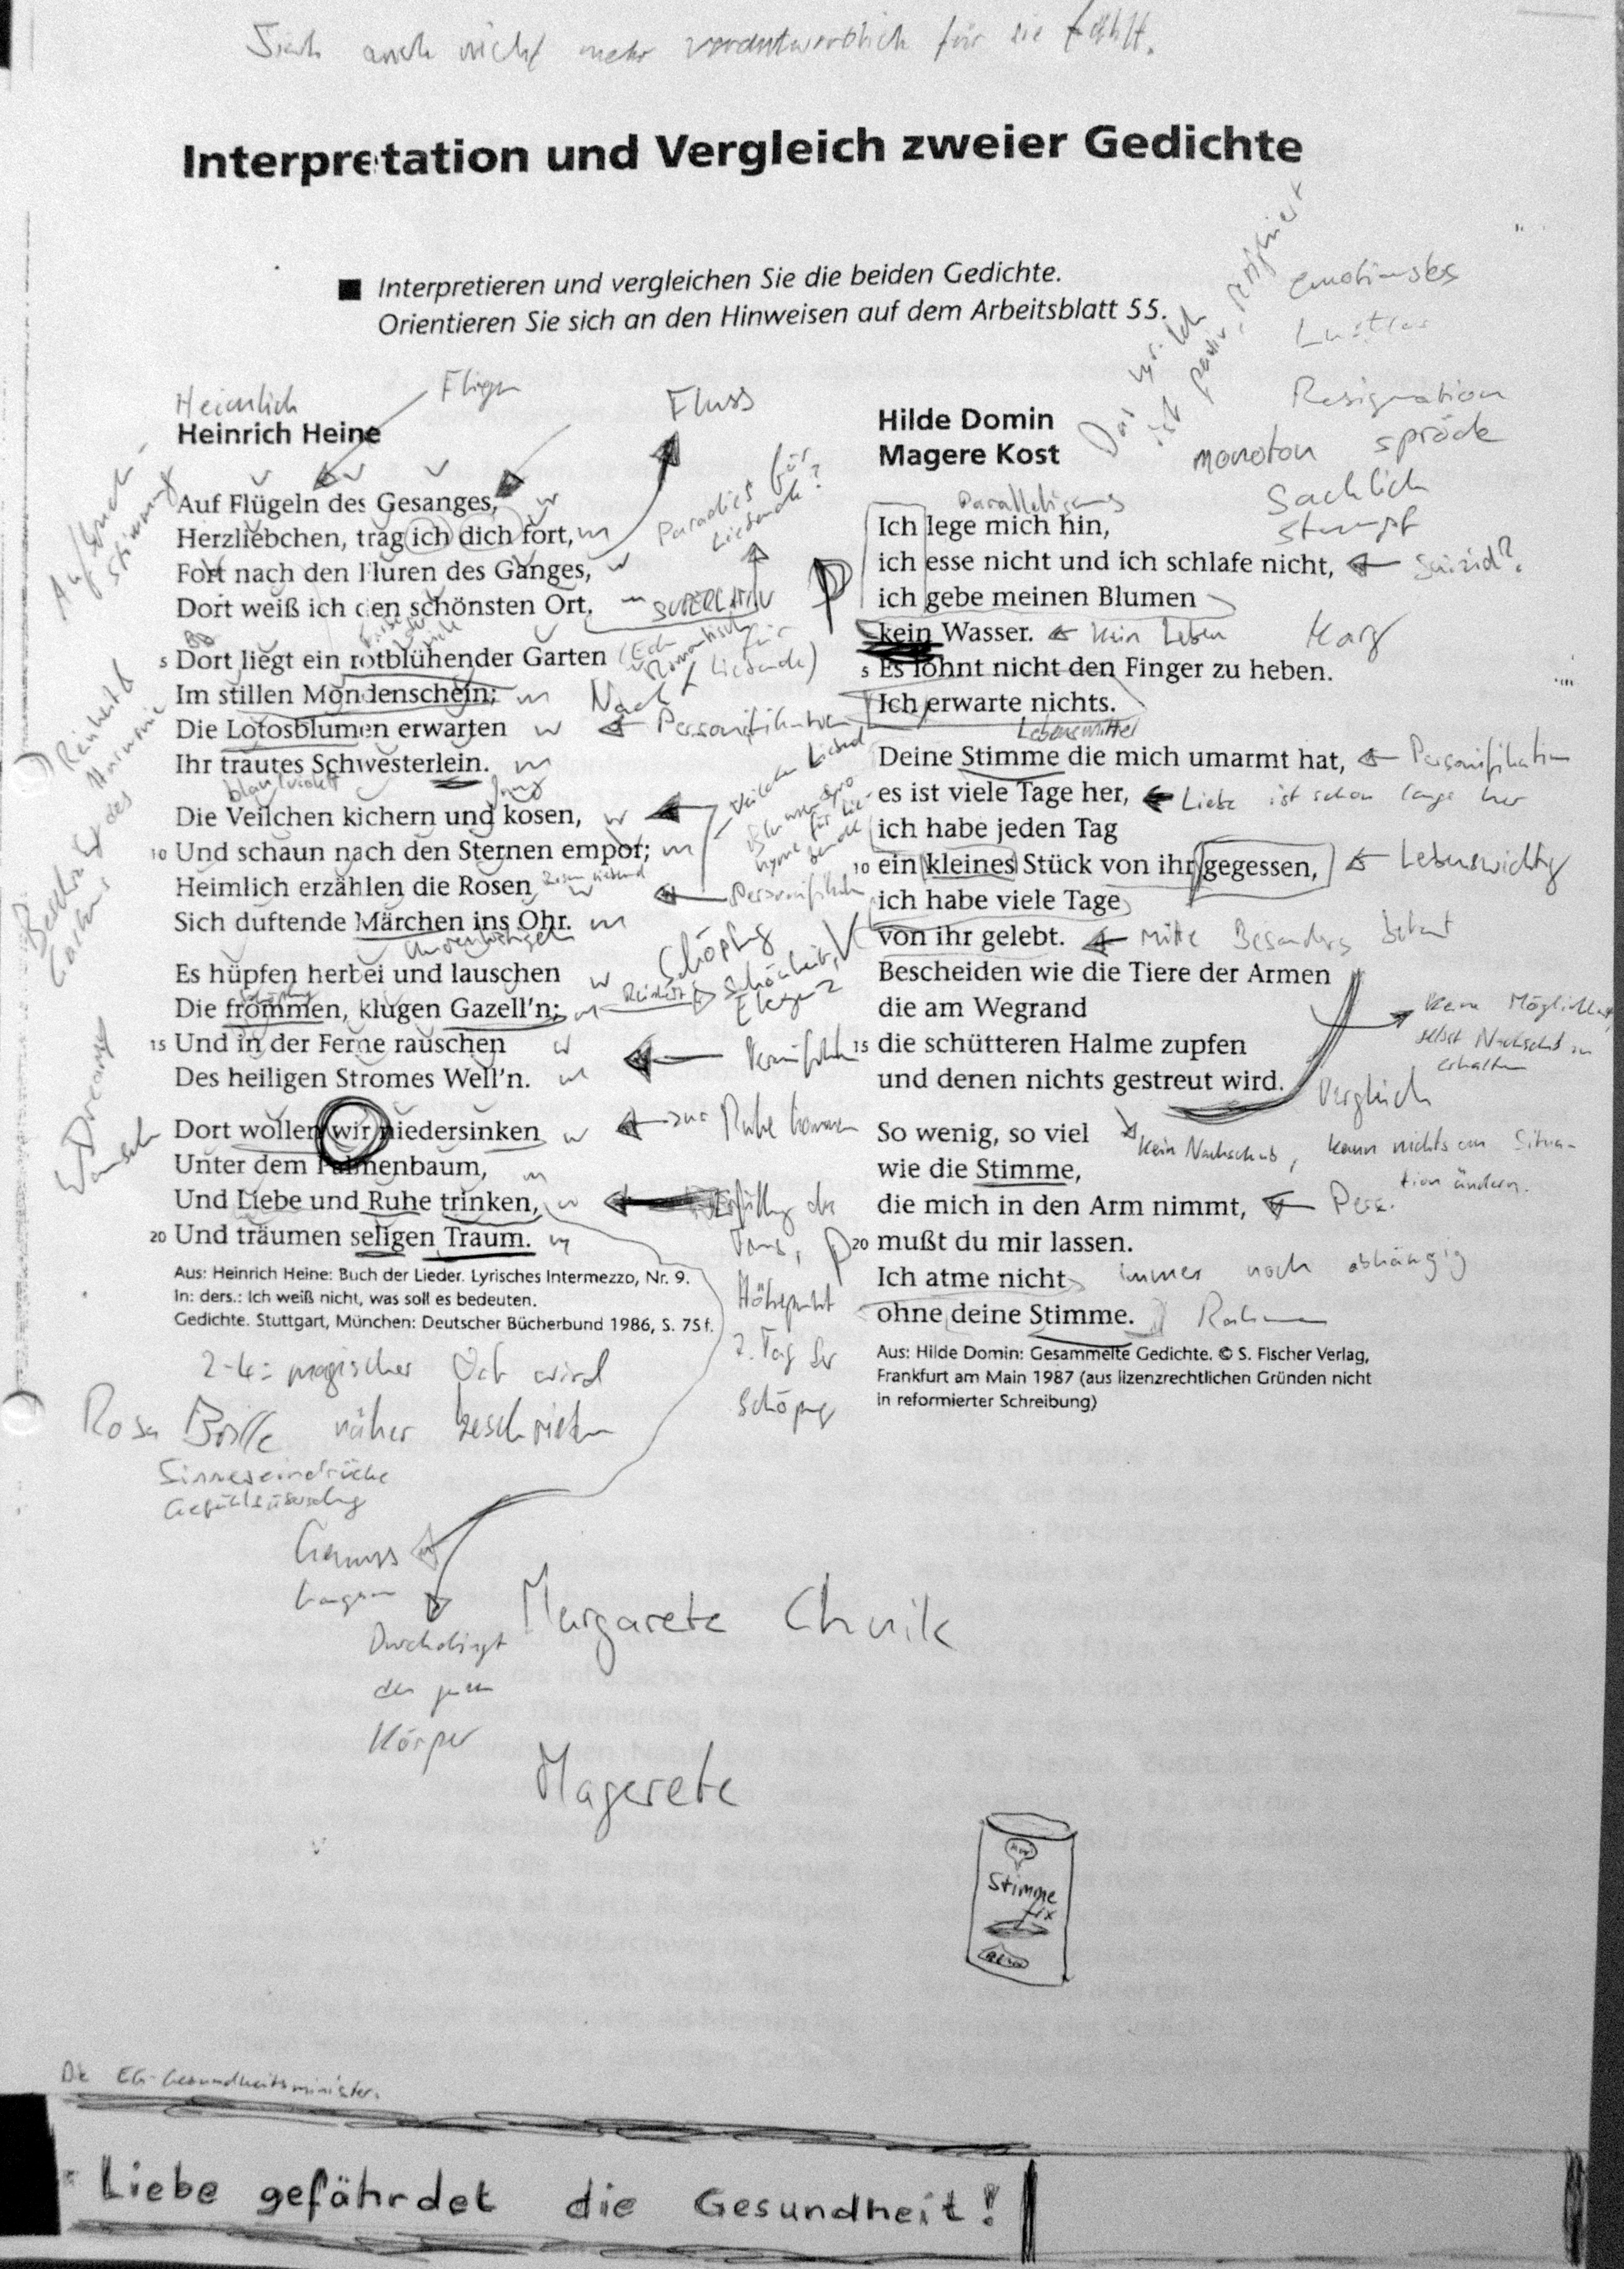 auch nicht mehr verantwortlich für sie fühlt.
Interpretation und Vergleich zweier Gedichte
Interpretieren und vergleichen Sie die beiden Gedichte.
Orientieren Sie sich an den Hinweisen auf dem Arbeitsblatt 55.
Das lyr. Ich
ist passiv, resigniert
emotionslos
Lustlos
Resignation
monoton spröde
Sachlich
stumpf
karg
Heimlich
Fliegen
Fluss
Heinrich Heine
Aufbruch-
stimmung
Auf Flügeln des Gesanges,
Herzliebchen, trag ich dich fort,
Fort nach den Fluren des Ganges,
Dort weiß ich den schönsten Ort.
Paradies für
Liebende?
SUPERLATIV
5 Dort liegt ein rotblühender Garten
Im stillen Mondenschein;
Die Lotosblumen erwarten
Ihr trautes Schwesterlein.
Nacht
romantisch für
Liebende)
Personifikation
Reinheit
Harmonie
blau/violett
Die Veilchen kichern und kosen,
10 Und schaun nach den Sternen empor;
Heimlich erzählen die Rosen
Sich duftende Märchen ins Ohr.
Personifikation
Beschreibung des
Gartens
Es hüpfen herbei und lauschen
Die frommen, klugen Gazell'n;
15 Und in der Ferne rauschen
Des heiligen Stromes Well'n.
Schöpfung
Reinheit
Schönheit,
Eleganz
Personifikation
Dort wollen wir niedersinken
Unter dem Palmenbaum,
Und Liebe und Ruhe trinken,
20 Und träumen seligen Traum.
zur Ruhe kommen
Dream
Wunsch
Erfüllung des
Höhepunkt
7. Tag der
Schöpfung
Aus: Heinrich Heine: Buch der Lieder. Lyrisches Intermezzo, Nr. 9.
In: ders.: Ich weiß nicht, was soll es bedeuten.
Gedichte. Stuttgart, München: Deutscher Bücherbund 1986, S. 75 f.
2-4: magischer Ort wird
Rosa Brille näher beschrieben
Sinneseindrücke
Genuss
langsam
Durchdringt
den ganzen
Körper
Hilde Domin
Magere Kost
Parallelismus
Ich lege mich hin,
ich esse nicht und ich schlafe nicht,
ich gebe meinen Blumen
kein Wasser.
5 Es lohnt nicht den Finger zu heben.
Ich erwarte nichts.
Suizid?
kein Leben
Lebensmittel
Deine Stimme die mich umarmt hat,
es ist viele Tage her,
ich habe jeden Tag
10 ein kleines Stück von ihr gegessen,
ich habe viele Tage
von ihr gelebt.
Bescheiden wie die Tiere der Armen
die am Wegrand
15 die schütteren Halme zupfen
und denen nichts gestreut wird.
Personifikation
Liebe ist schon lange her
Lebenswichtig
Mitte Besonders betont
keine Möglichkeit,
selbst Nachschub zu
erhalten
Vergleich
So wenig, so viel
wie die Stimme,
die mich in den Arm nimmt,
20 mußt du mir lassen.
Ich atme nicht
ohne deine Stimme.
kein Nachschub, kann nichts an Situa-
tion ändern.
Pers.
immer noch abhängig
Rahmen
Aus: Hilde Domin: Gesammelte Gedichte. © S. Fischer Verlag,
Frankfurt am Main 1987 (aus lizenzrechtlichen Gründen nicht
in reformierter Schreibung)
Margarete
Magerete
Stimme
fix
Die EG-Gesundheitsminister:
Liebe gefährdet die Gesundheit!